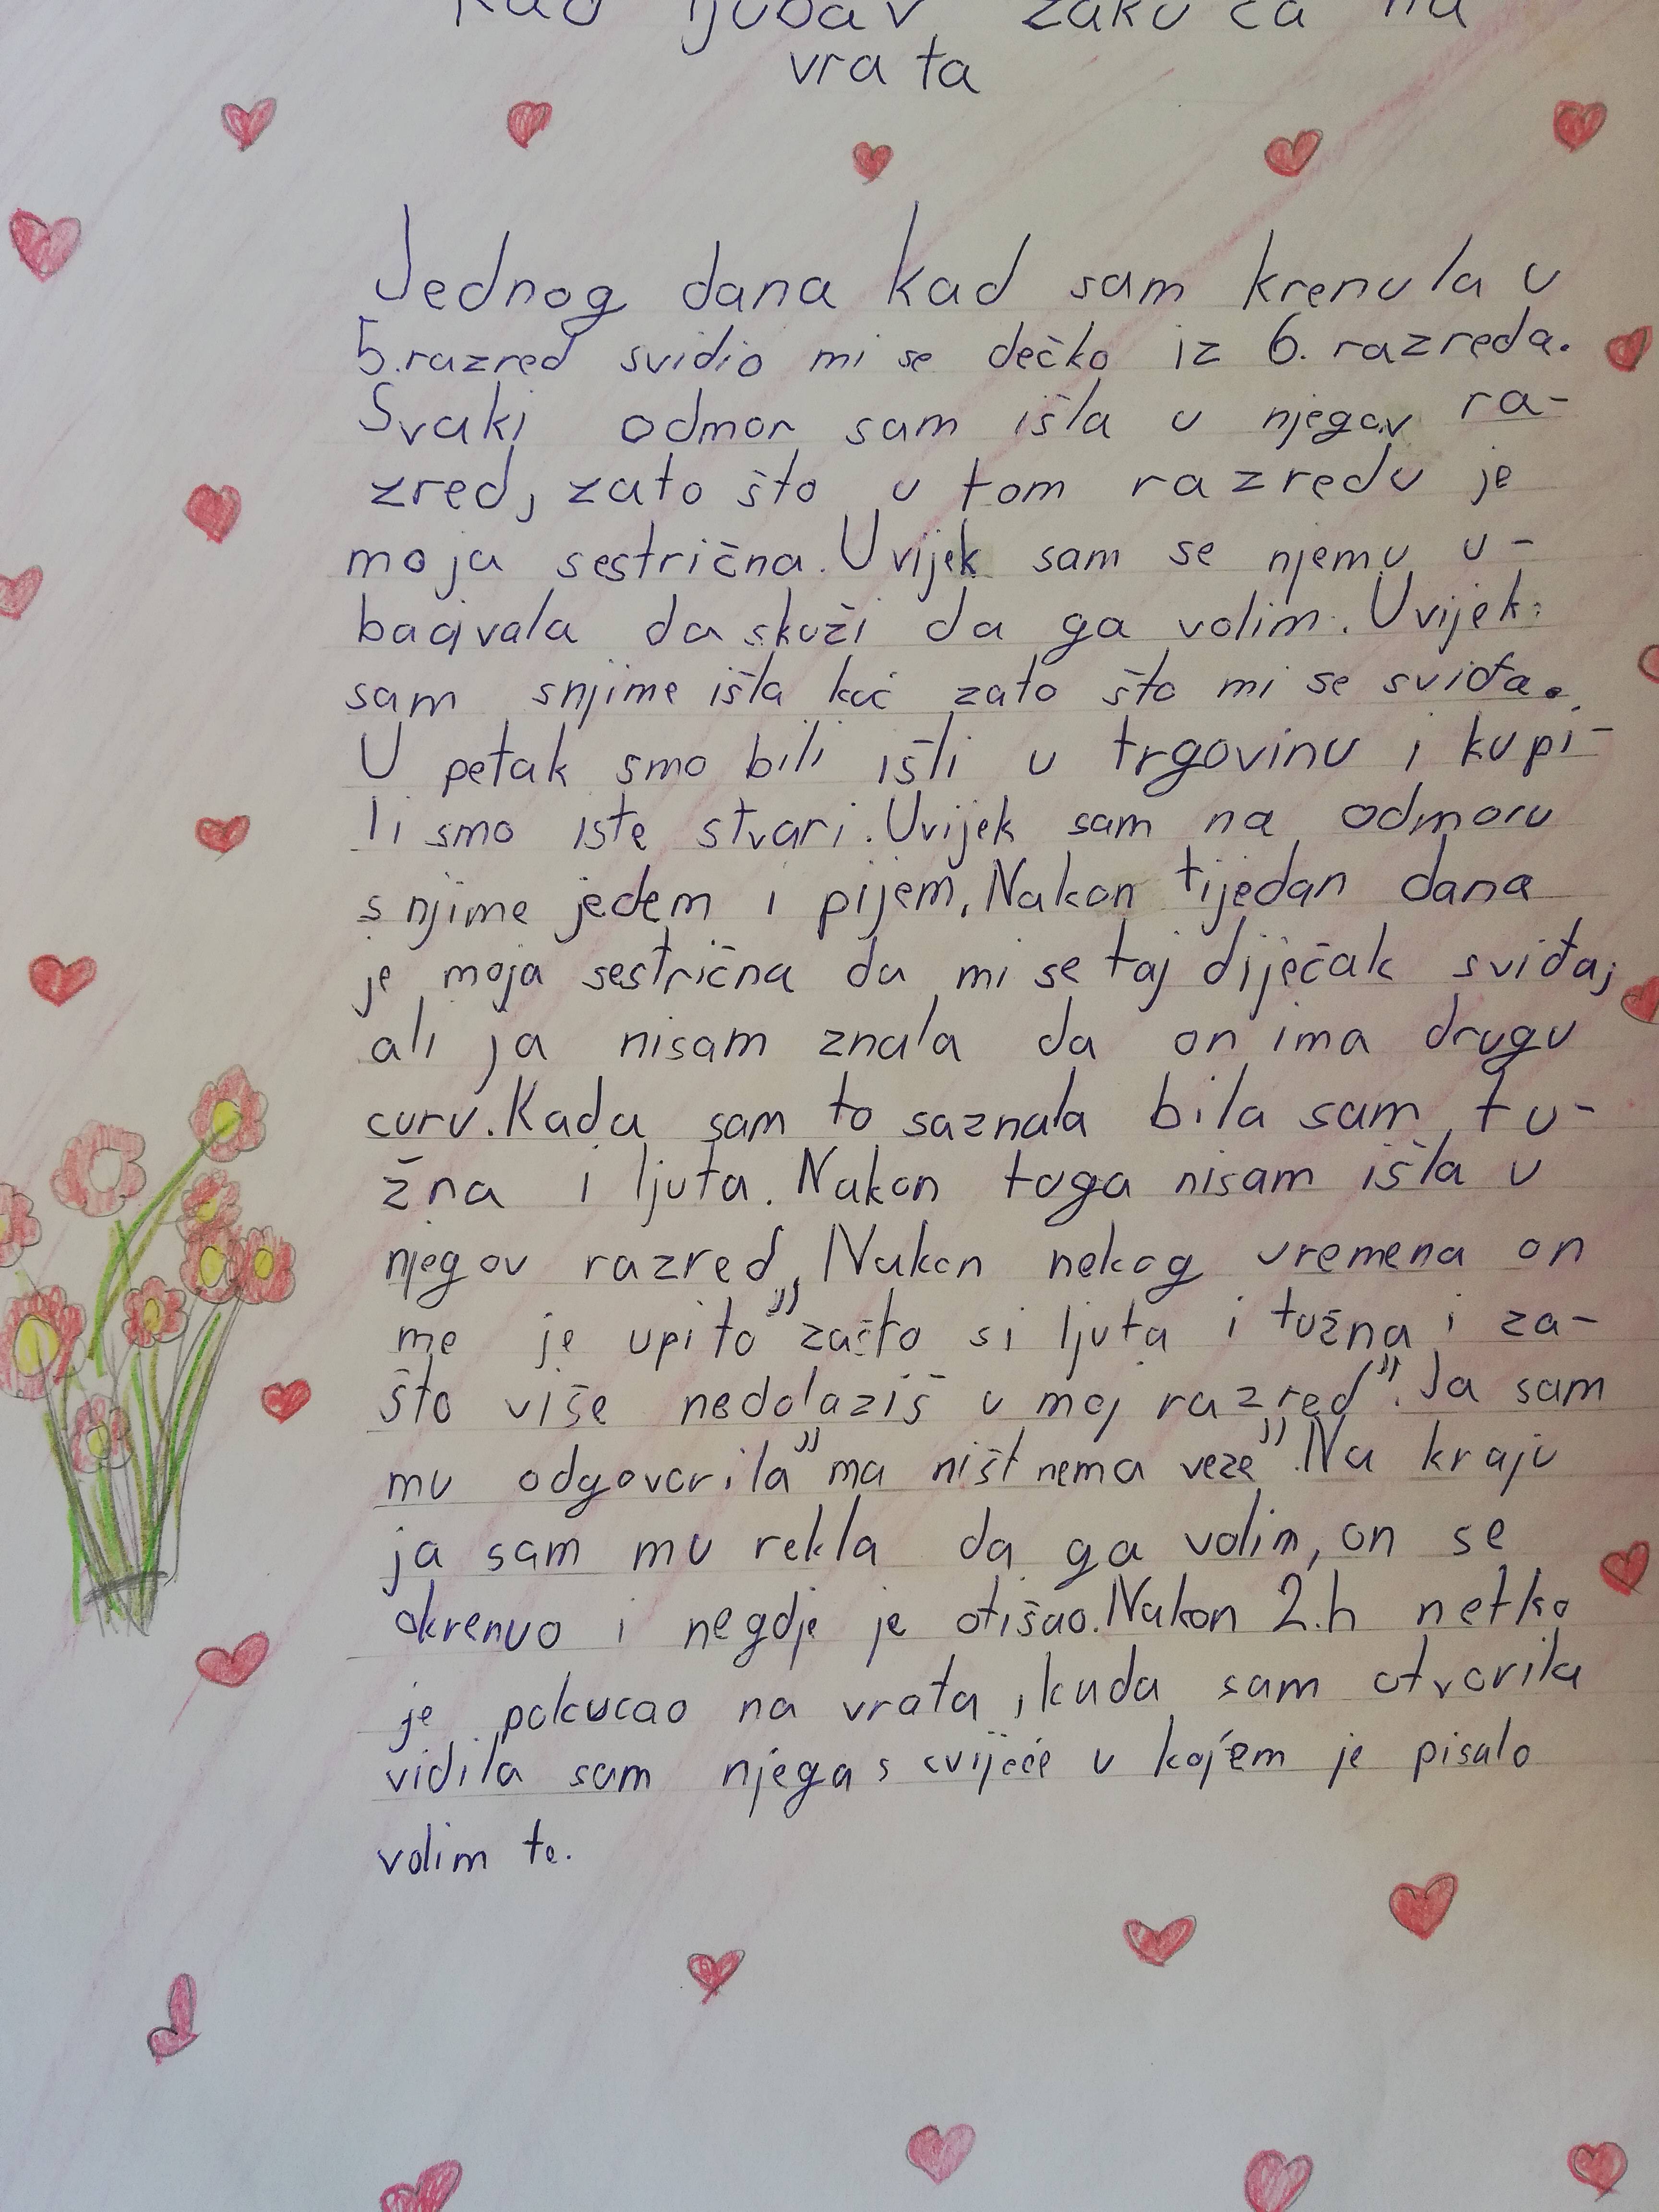 Kad ljubav zakuca na
vrata
Jednog dana kad sam krenula u
5.razred svidio mi se dečko iz 6. razreda.
Svaki odmor sam išla u njegov ra-
zred, zato što u tom razredu je
moja sestrična. Uvijek sam se njemu u-
bacivala da skuži da ga volim. Uvijek
sam snjime išla kuć zato što mi se sviđa.
U petak smo bili išli u trgovinu i kupi-
li smo iste stvari. Uvijek sam na odmoru
s njime jedem i pijem. Nakon tijedan dana
je moja sestrična da mi se taj diječak sviđa,
ali ja nisam znala da on ima drugu
curu. Kada sam to saznala bila sam tu-
žna i ljuta. Nakon toga nisam išla u
njegov razred. Nakon nekog vremena on
me je upito "zašto si ljuta i tužna i za-
što više nedolaziš u moj razred". Ja sam
mu odgovorila "ma ništ nema veze". Na kraju
ja sam mu rekla da ga volim, on se
okrenuo i negdje je otišao. Nakon 2.h netko
je pokucao na vrata, kada sam otvorila
vidila sam njega s cvijeće u kojem je pisalo
volim te.